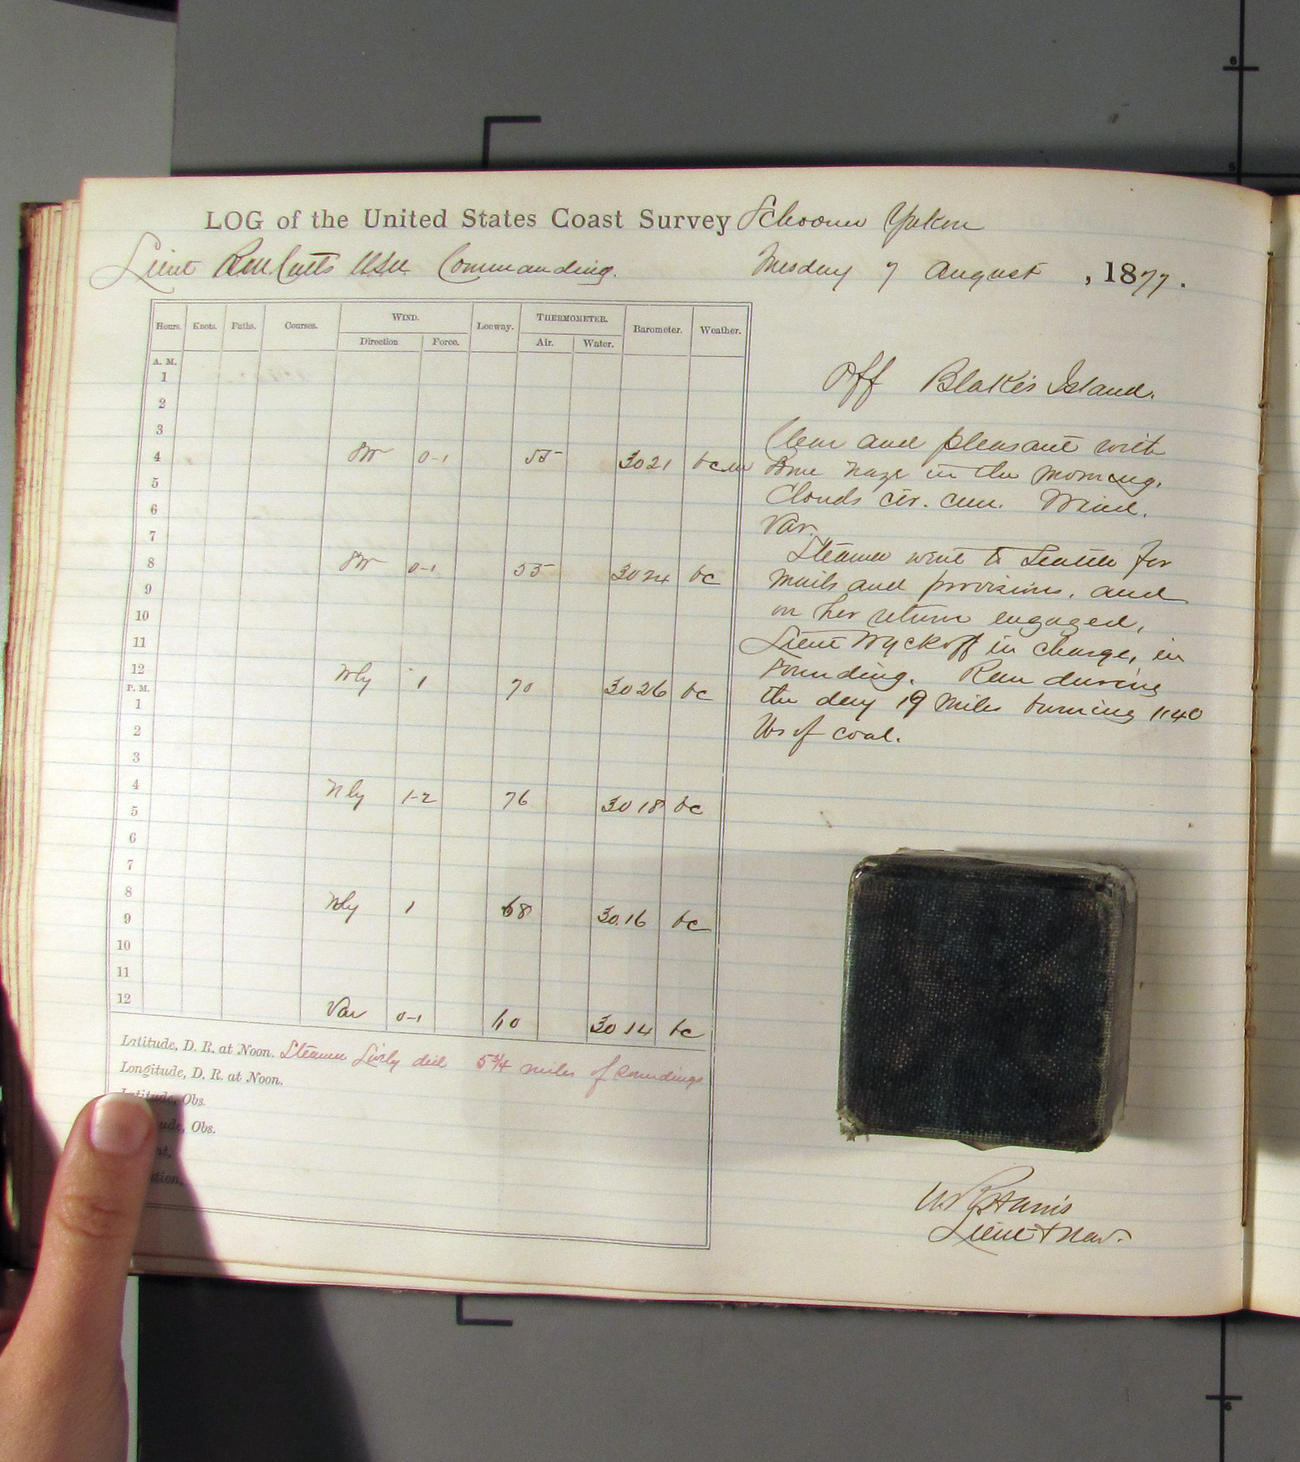 LOG of the United States Coast Survey Schooner Yukon
Lieut R M Cutts USN Commanding. Tuesday 7 August, 1877.
Hours. Knots. Faths. Courses. WIND. Leeway. THERMOMETER. Barometer. Weather.
Direction Force. Air. Water.
A. M.
1
2
3
4 SW 0-1 55 30 21 bcm
5
6
7
8 SW 0-1 55 30 24 bc
9
10
11
12 Wly 1 70 30 26 bc
P. M.
1
2
3
4 Nly 1-2 76 30 18 bc
5
6
7
8 Nly 1 68 30.16 bc
9
10
11
12 Var 0-1 60 30 14 bc
Latitude, D. R. at Noon. Steamer Lively did 5 3/4 miles of soundings
Longitude, D. R. at Noon.
Latitude, Obs.
ude, Obs.
nt.
tion,
Off Blake's Island.
Clear and pleasant with
some haze in the morning.
Clouds cir. cum. Wind.
Var.
Steamer went to Seattle for
mails and provisions, and
on her return engaged,
Lieut Wyckoff in charge, in
sounding. Ran during
the day 19 miles burning 1140
lbs of coal.
Harris
Lieut & Nav.